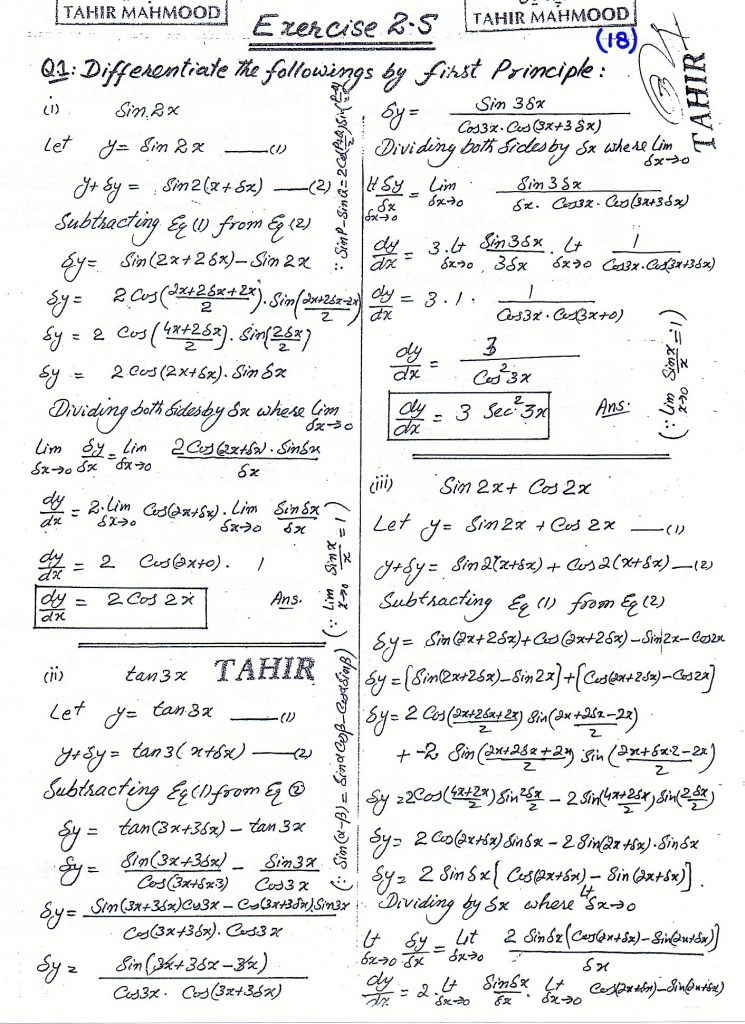 TAHIR MAHMOOD
Exercise 2.5
TAHIR MAHMOOD
(18)
TAHIR
Q1: Differentiate the followings by first Principle:
(i) Sin 2x
Let y = Sin 2x —(1)
y+δy = Sin2(x+δx) —(2)
Subtracting Eq (1) from Eq (2)
δy = Sin(2x+2δx)−Sin2x
δy = 2Cos((2x+2δx+2x)/2).Sin((2x+2δx−2x)/2)
δy = 2 Cos((4x+2δx)/2).Sin(2δx/2)
δy = 2Cos(2x+δx).Sinδx
Dividing both Sides by δx where Lim δx→0
Lim δx→0 δy/δx = Lim δx→0 2Cos(2x+δx).Sinδx/δx
dy/dx = 2.Lim δx→0 Cos(2x+δx).Lim δx→0 Sinδx/δx
dy/dx = 2 Cos(2x+0). 1
dy/dx = 2Cos2x Ans.
(∵ Lim x→0 Sinx/x = 1)
(ii) tan3x TAHIR
Let y = tan3x —(1)
y+δy = tan3(x+δx) —(2)
Subtracting Eq(1) from Eq (2)
δy = tan(3x+3δx)−tan3x
δy = Sin(3x+3δx)/Cos(3x+δx3) − Sin3x/Cos3x
δy = Sin(3x+3δx)Cos3x−Cos(3x+3δx).Sin3x/Cos(3x+3δx).Cos3x
δy = Sin(3x+3δx−3x)/Cos3x.Cos(3x+3δx)
(∵ Sin(α−β) = Sinα Cosβ−Cosα Sinβ)
δy = Sin3δx/Cos3x.Cos(3x+3δx)
Dividing both Sides by δx where Lim δx→0
Lt δx→0 δy/δx = Lim δx→0 Sin3δx/δx.Cos3x.Cos(3x+3δx)
dy/dx = 3.Lt δx→0 Sin3δx/3δx.Lt δx→0 1/Cos3x.Cos(3x+3δx)
dy/dx = 3.1.1/Cos3x.Cos(3x+0)
dy/dx = 3/Cos²3x
dy/dx = 3 Sec²3x Ans:
(∵ Lim x→0 Sinx/x = 1)
(iii) Sin2x+Cos2x
Let y = Sin2x+Cos2x —(1)
y+δy = Sin2(x+δx)+Cos2(x+δx)—(2)
Subtracting Eq (1) from Eq (2)
δy = Sin(2x+2δx)+Cos(2x+2δx)−Sin2x−Cos2x
δy = [Sin(2x+2δx)−Sin2x]+[Cos(2x+2δx)−Cos2x]
δy = 2Cos((2x+2δx+2x)/2) Sin((2x+2δx−2x)/2)
+ −2 Sin((2x+2δx+2x)/2) Sin((2x+δx2−2x)/2)
δy = 2Cos((4x+2x)/2)Sin 2δx/2 − 2Sin((4x+2δx)/2)Sin(2δx/2)
δy = 2Cos(2x+δx)Sinδx − 2Sin(2x+δx).Sinδx
δy = 2Sinδx[Cos(2x+δx)−Sin(2x+δx)].
Dividing by δx where Lt δx→0
Lt δx→0 δy/δx = Lt δx→0 2Sinδx[Cos(2x+δx)−Sin(2x+δx)]/δx
dy/dx = 2.Lt δx→0 Sinδx/δx.Lt δx→0 Cos(2x+δx)−Sin(2x+δx)